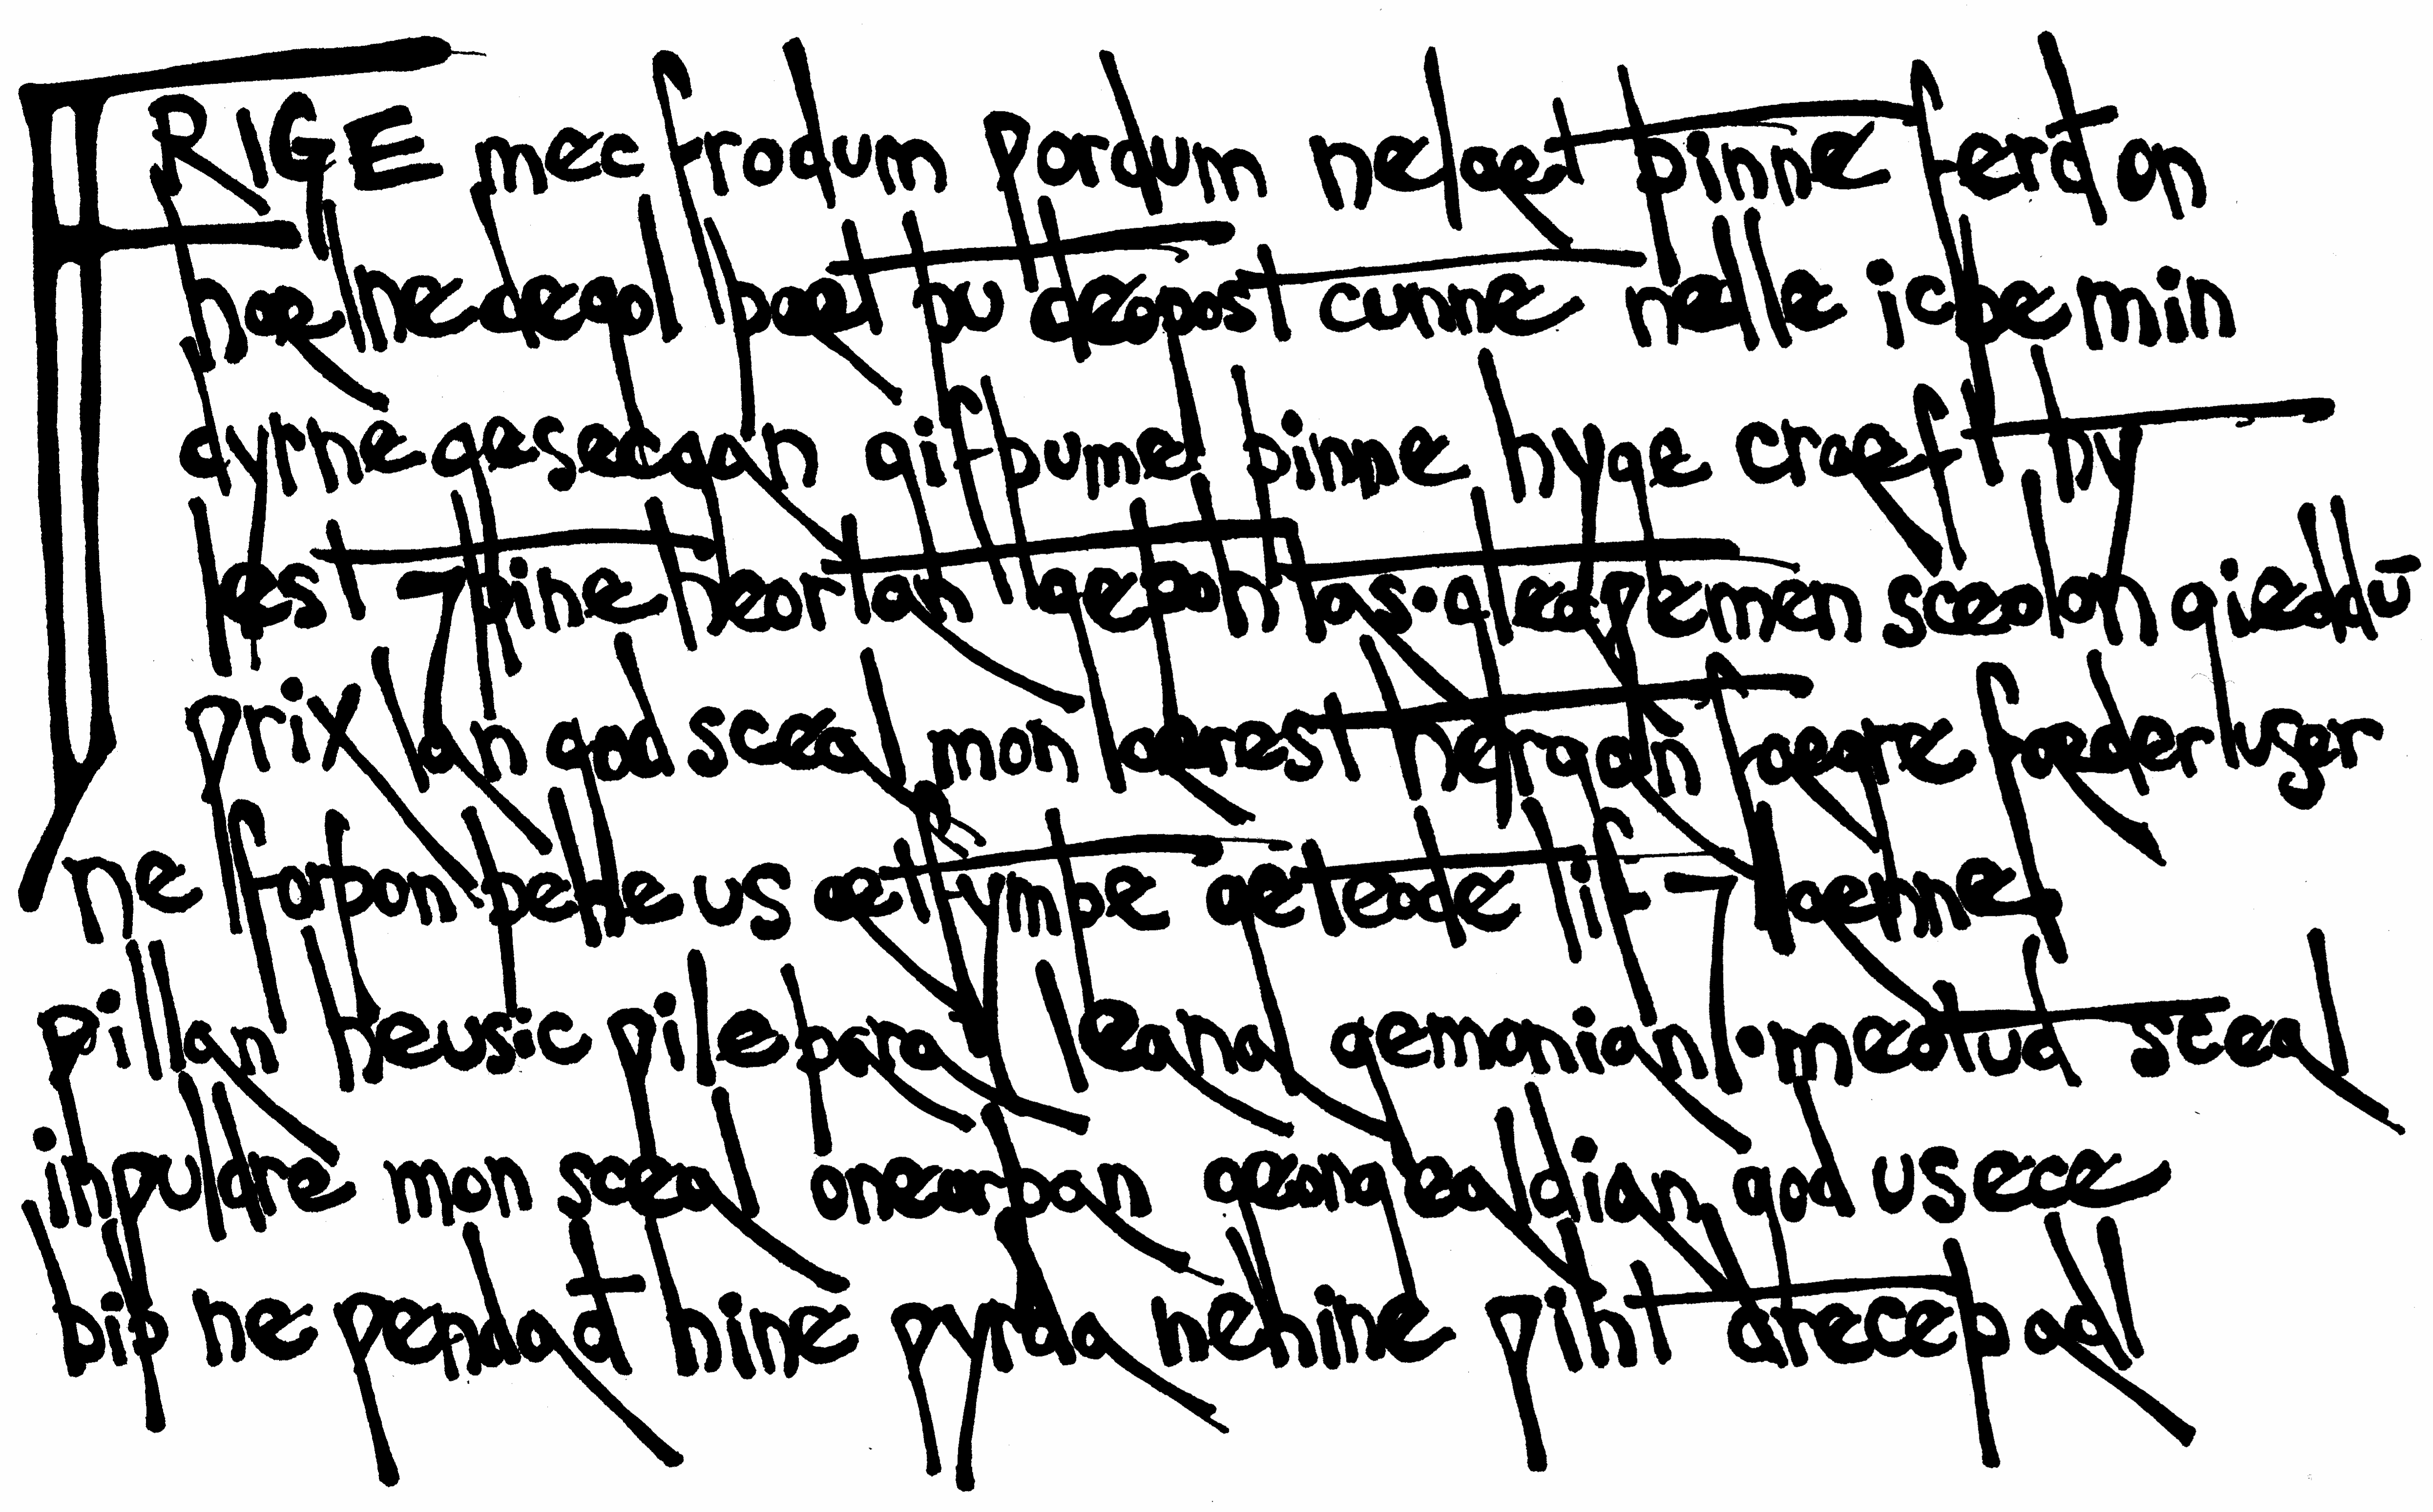 FRIGE mec frodum ƿordum nelæt þinne ferð on
hælne degol þæt þu deopost cunne nelle ic þe min
dyrne gesecgan gif þu me þinne hyge cræft hy
lest ⁊ þine heortan geþohtas · gleaƿe men sceolon gieddū
ƿrixlan god sceal mon ærest hergan fægre fæder user
ne forþon þe he us æt frymþe geteode lif ⁊ lænne
ƿillan he usic ƿile þara leana gemonian · meotud sceal
in ƿuldre mon sceal on eorþan geong ealdian god us ece
biþ ne ƿendað hine ƿyrda ne hine ƿiht dreceþ adl